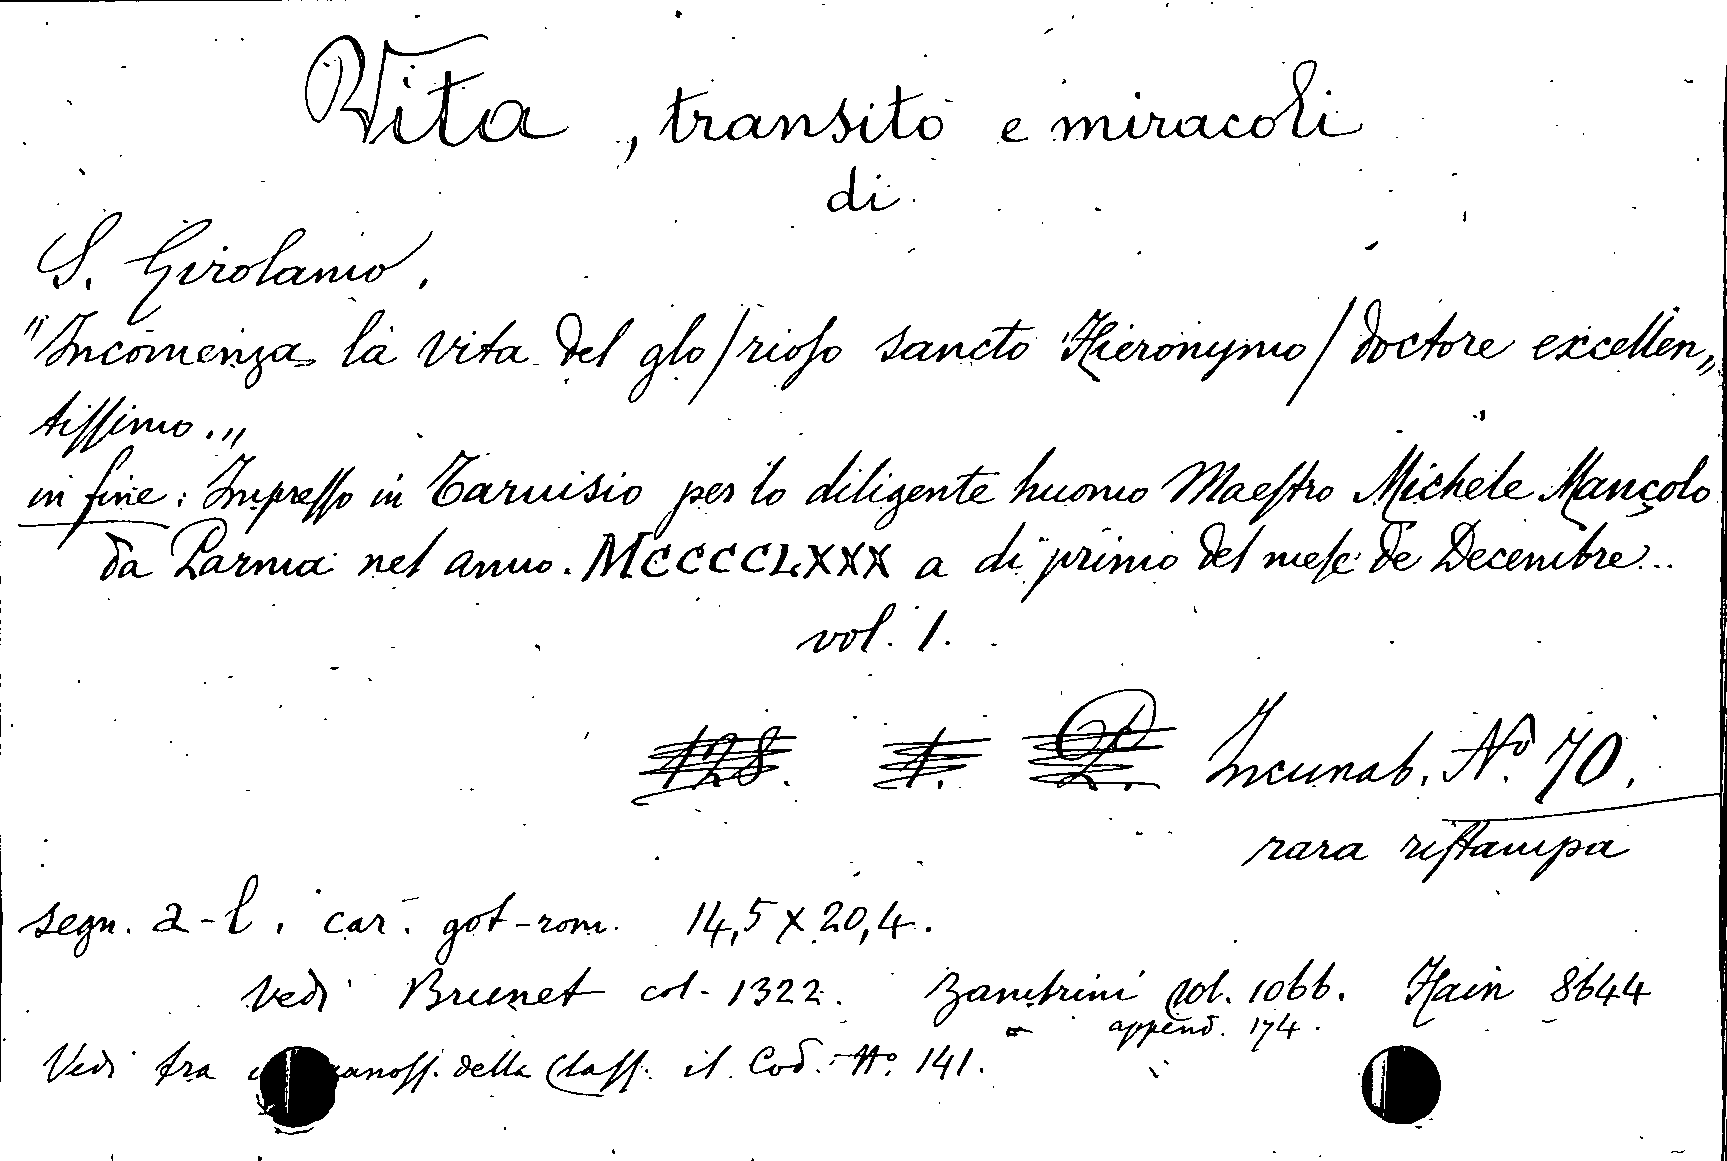 Vita, transito e miracoli
di
S. Girolamo.
"Incomenza la vita del glo/rioso sancto Hieronymo/doctore excellen„
tissimo.„
in fine: Impresso in Taruisio per lo diligente huomo Maestro Michele Mançolo
da Parma nel anno. MCCCCLXXX a di primo del mese de Decembre...
vol. 1.
128. 1. P. Incunab. No. 70.
rara ristampa
segn. a-l. car. got-rom. 14,5 x 20,4.
Vedi Brunet col. 1322. Zambrini col. 1066. Hain 8644
append. 174.
Vedi fra della Class. il Cod. No. 141.